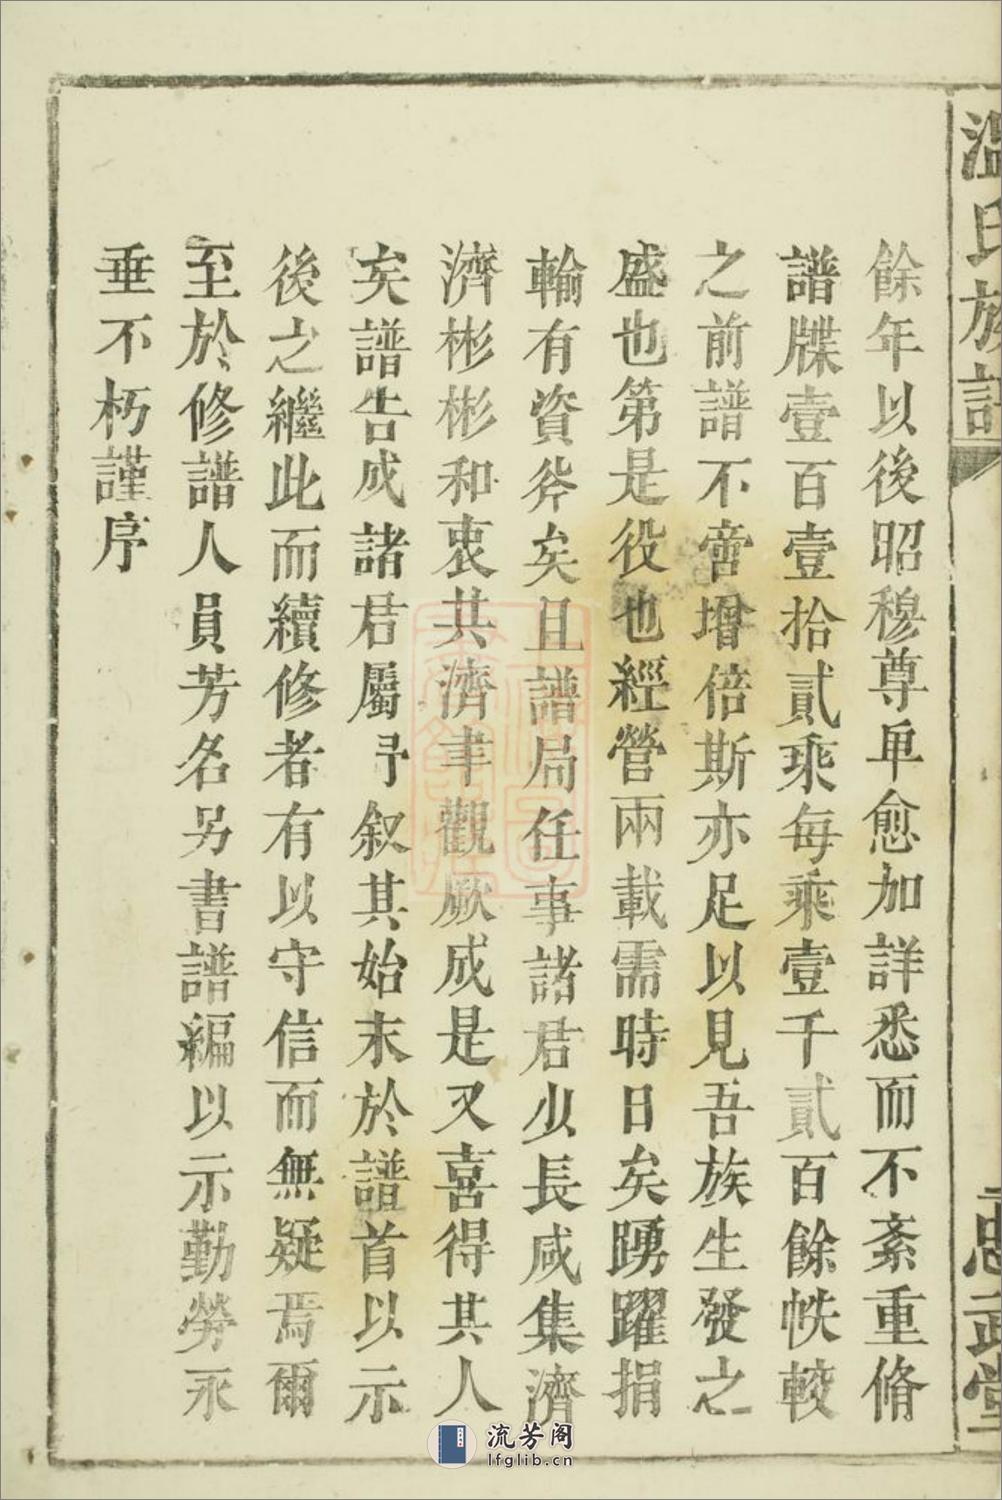 溫氏族譜
二
忠武堂
餘年以後昭穆尊卑愈加詳悉而不紊重脩
譜牒壹百壹拾貳乘每乘壹千貳百餘帙較
之前譜不啻增倍斯亦足以見吾族生發之
盛也第是役也經營兩載需時日矣踴躍捐
輸有資斧矣且譜局任事諸君少長咸集濟
濟彬彬和衷共濟聿觀厥成是又喜得其人
矣譜告成諸君屬予叙其始末於譜首以示
後之繼此而續修者有以守信而無疑焉爾
至於修譜人員芳名另書譜編以示勤勞永
垂不朽謹序
流芳阁
lfglib.cn